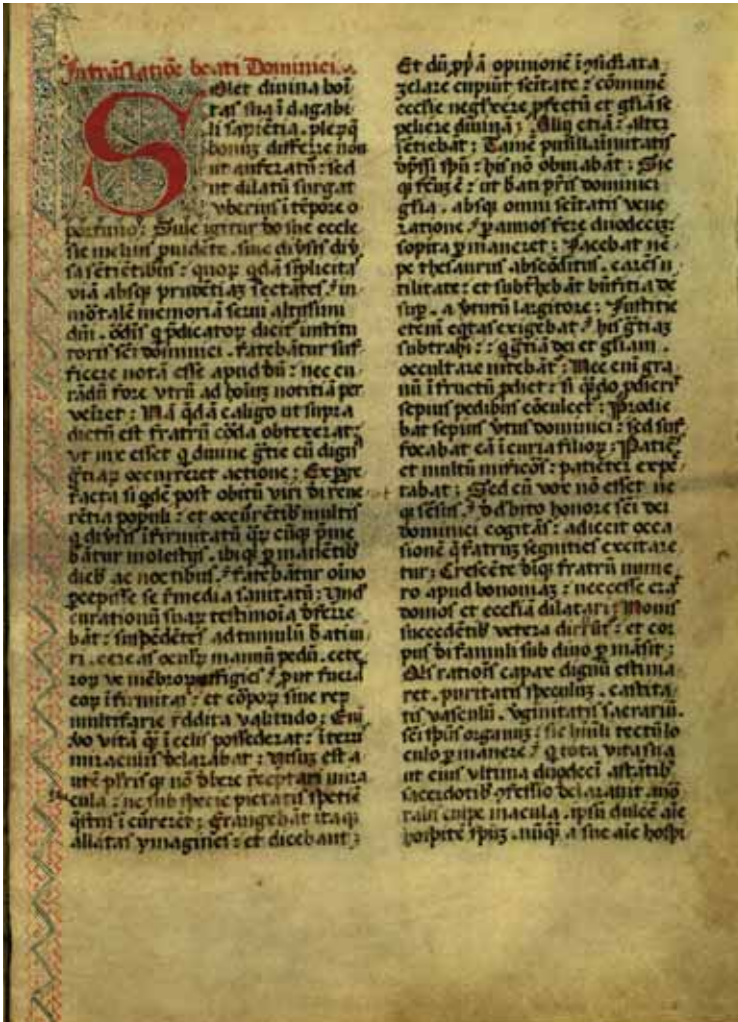 In trãslatiõe beati Dominici.
Solet diuina boĩ
tas sua ĩ dagabi
li sapiẽtia. plerq̃
bonuʒ differre non
ut auferatũ: sed
ut dilatũ surgat
vberius ĩ tẽpore o
portuno:
sie melius puidẽte. siue diũsis diũ
sa sẽtiẽtibus: quoꝝ qdã sĩplicita
viã absqꝫ prudẽtiaʒ sectates. ĩn
mõtalẽ memoriã serui altissimi
dñi. õdis q̃ p̃dicatoꝝ dicit institu
toris sc̃i dominici. fatebãtur suf
ficere notã esse apud dũ: nec cu
rãdũ fore vtrũ ad hoĩuʒ notitiã per
veĩret: Nã q̃dã caligo ut supra
dictũ est fratrũ cõda obtexerat:
ut nix esset q̃ diuine gr̃tie cũ digñ
gr̃tiaꝝ occurreret actione: Exꝑge
facta si qdẽ post obitũ viri di reue
rẽtia populi: et occũrẽtib multis
q̃ diũsis ĩfirmitatũ
bãtur molestijs. ibi qꝫ ꝑ manẽtib
dieb ac noctibus. fatebãtur oĩno
ꝑcepisse se r̃media sanitatũ: Vnd
curationũ suaꝝ testimoĩa d̃ferre
bãt: suspẽdẽtes ad tumulũ b̃ati ui
ri. cereas oculoꝝ manuũ pedũ. cete
roꝝ ve mẽbroꝝ effigies
eoꝝ ĩfirmitas: et cõpoꝝ siue reꝝ
multifarie r̃ddita valitudo:
vo vitã q̃ ĩ celis possederat: ĩ terris
miraculis d̃clarabat: Visuʒ est a
utẽ pl̃ris qꝫ nõ d̃bere r̃ceptari mira
cula: ne sub specie pietatis spetiẽ
q̃stus ĩcũreret: frangebãt itaqꝫ
allatas ymagines: et dicebant:
Et dũ ꝓp̃ã opinionẽ ĩcõsid̃rata
zelare cupiũt sc̃itate: cõmunẽ
ecclsie negl̃gere ꝓfectũ et gl̃iã se
peliere diuinã: Aliq̃ etiã: alter
sẽtiebãt: Tamẽ pusillanimitatis
op̃ssi sp̃u: his nõ obuiabãt: Sic
q̃ factũ ẽ: ut b̃ati p̃ris dominici
gl̃ia. absqꝫ omni sc̃itatis vene
ratione. ꝑ annos fere duodeciʒ:
sopita ꝑ maneret: Iacebat nẽ
pe thesaurus abscõditus. carẽs u
tilitate: et subt̃hebãt b̃nfitia de
suꝑ. a v̓tutũ largitore: Iustitie
etem̃ eq̃tas exigebat
subtrahi: q̃ gr̃iã dei et gl̃iam.
occultare nitebãt: Nec eni gra
nũ ĩ fructũ ꝓdiet: si q̃do ꝓdierit
sepius pedibus cõculcet: Prodie
bat sepius v̓tus dominici: sed suf
focabat eã ĩ curia filioꝝ: Patiẽs
et multũ mĩsicõs: patiẽter expe
tabat: Sed cũ vox nõ esset ne
qꝫ sẽsus. d̃ d̃bito honore sc̃i dei
dominici cogitãs: adiecit occa
sionẽ q̃ fratruʒ segnities excitare
tur: Crescẽte diqꝫ fratrũ nume
ro apud bononiaʒ: neccesse erat
domos et ecclsiã dilatari: Nouis
succedẽtib vetera diruũt: et cor
pus di famuli sub diuo ꝑ mãsit:
Qis ratiõis capax dignũ estima
ret. puritatis speculuʒ. castita
tis vasculũ. v̓ginitatis sacrariũ.
sc̃i sp̃us organuʒ: sic hũili tectũ lo
culo ꝑ manere. q̃ tota vita sua
ut eius vltima duodeci astãtib
sacerdotib cõfessio d̃clarauit. mor
talis culpe macula. ipsũ dulcẽ aĩe
hospitẽ sp̃uʒ. nũq̃ a sue aĩe hospi